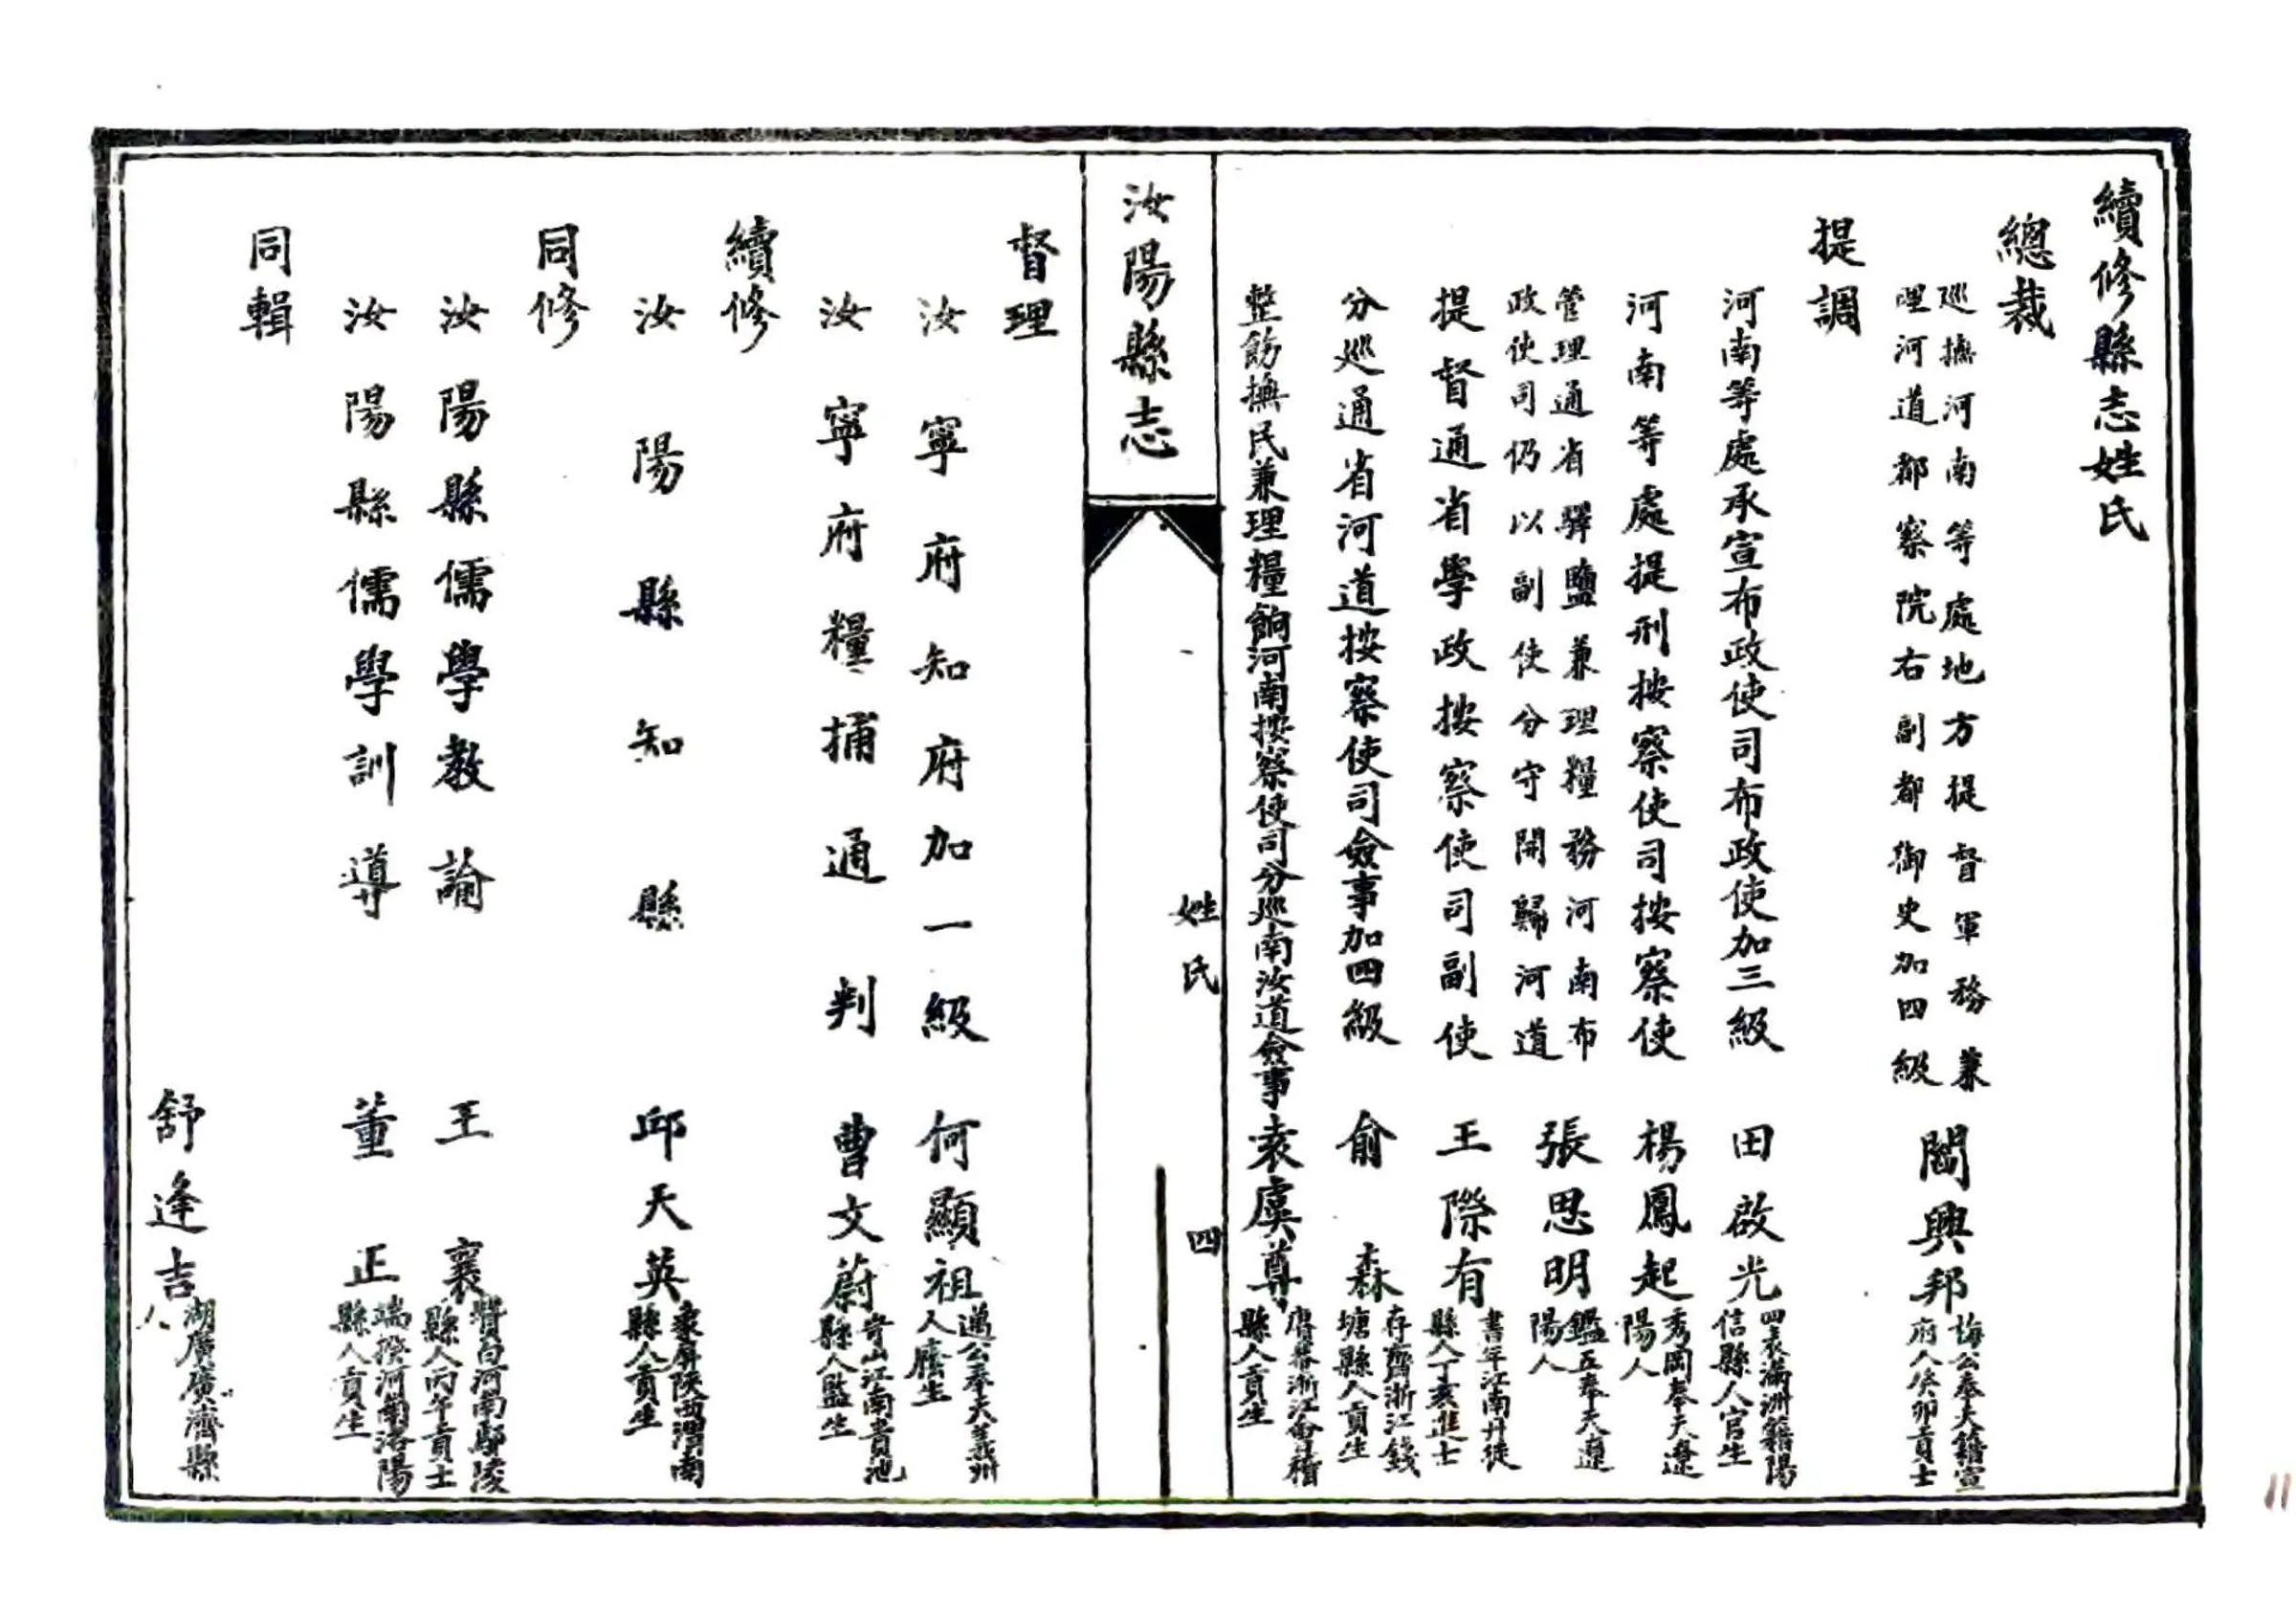 續修縣志姓氏
總裁
巡撫河南等處地方提督軍務兼
理河道都察院右副都御史加四級
閻興邦
梅公奉天籍宣
府人癸卯貢士
提調
河南等處承宣布政使司布政使加三級
田啟光
四表滿洲籍陽
信縣人官生
河南等處提刑按察使司按察使
楊鳳起
秀岡奉天遼
陽人
管理通省驛鹽兼理糧務河南布
政使司仍以副使分守開歸河道
張思明
鑑五奉天遼
陽人
提督通省學政按察使司副使
王際有
書年江南丹徒
縣人丁亥進士
分巡通省河道按察使司僉事加四級
俞森
存齋浙江錢
塘縣人貢生
整飭撫民兼理糧餉河南按察使司分巡南汝道僉事
袁虞尊
浙江會稽
縣人貢生
汝陽縣志
姓氏
四
督理
汝寧府知府加一級
何顯祖
邁公奉天義州
人廕生
汝寧府糧捕通判
曹文蔚
岢山江南貴池
縣人監生
續修
汝陽縣知縣
邱天英
象屏陝西渭南
縣人貢生
同修
汝陽縣儒學教諭
王襄
贊白河南鄢陵
縣人丙午貢士
汝陽縣儒學訓導
董正
端揆河南洛陽
縣人貢生
同輯
舒逢吉
湖廣廣濟縣
人
11